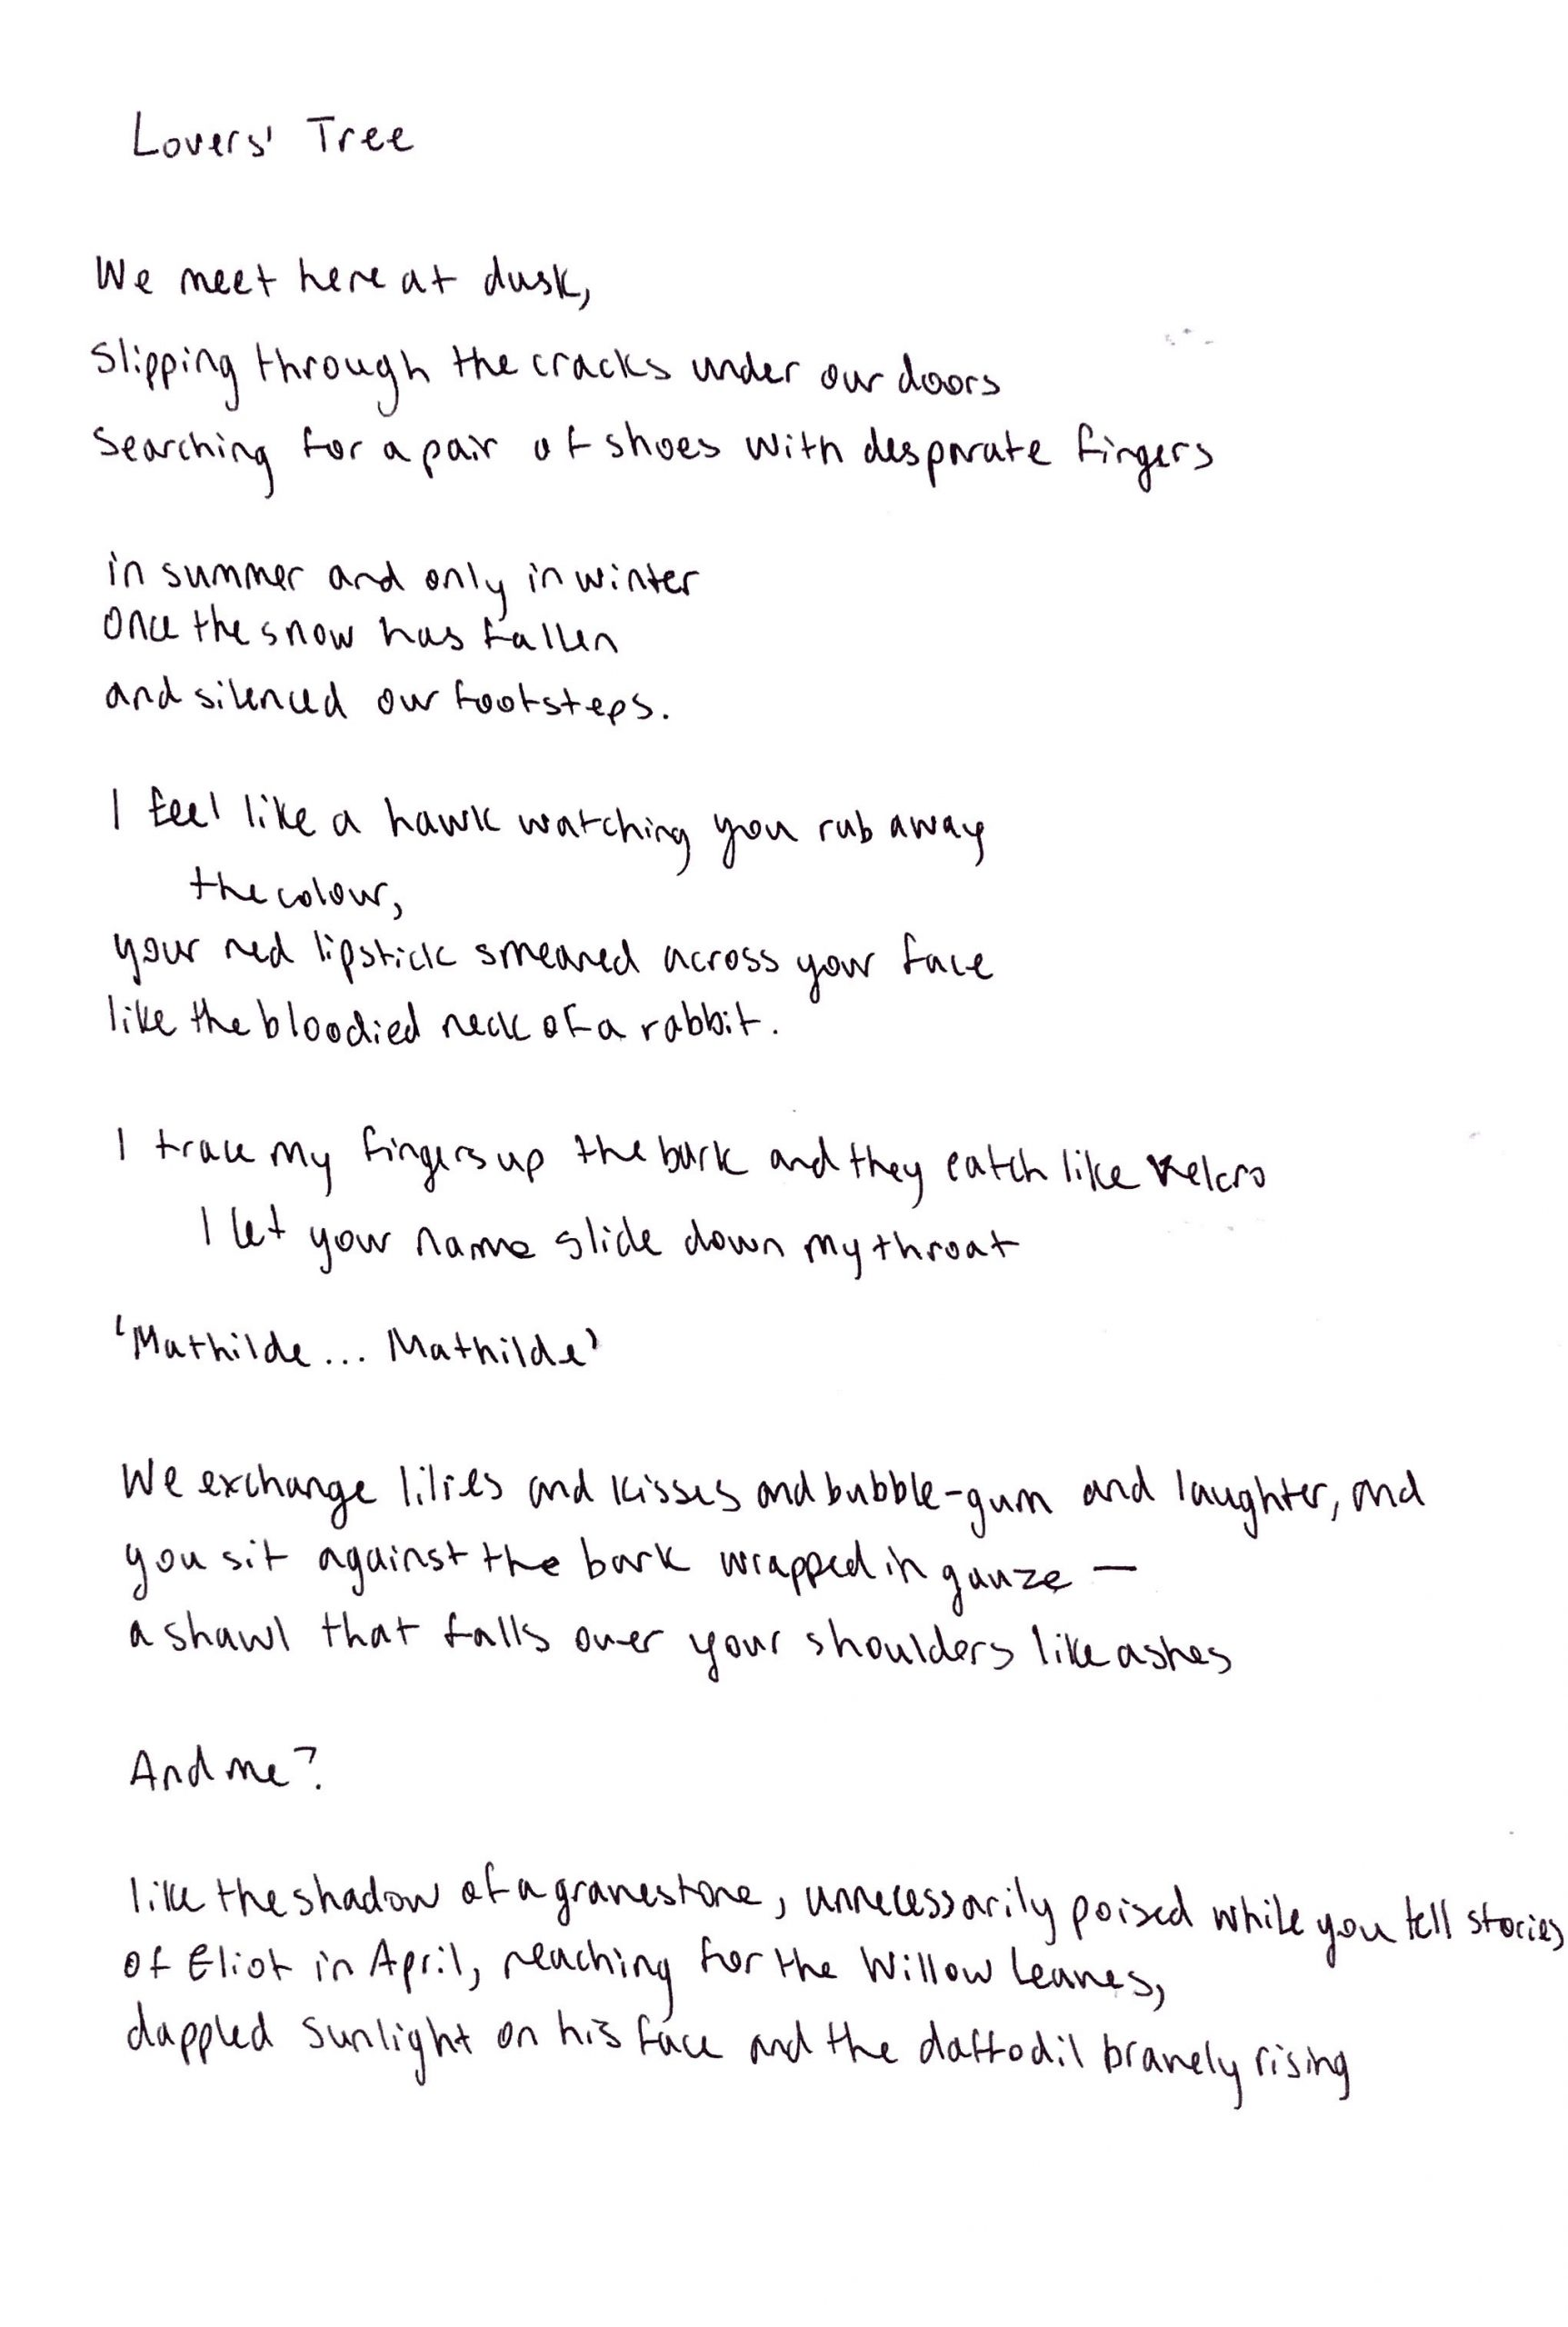 Lovers' Tree
We meet here at dusk,
Slipping through the cracks under our doors
Searching for a pair of shoes with desparate fingers
in summer and only in winter
once the snow has fallen
and silenced our footsteps.
I feel like a hawk watching you rub away
the colour,
your red lipstick smeared across your face
like the bloodied neck of a rabbit.
I trace my fingers up the bark and they catch like velcro
I let your name slide down my throat
'Mathilde... Mathilde'
We exchange lilies and kisses and bubble-gum and laughter, and
you sit against the bark wrapped in gauze —
a shawl that falls over your shoulders like ashes
And me?
like the shadow of a gravestone, unnecessarily poised while you tell stories
of Eliot in April, reaching for the Willow Leaves,
dappled sunlight on his face and the daffodil bravely rising